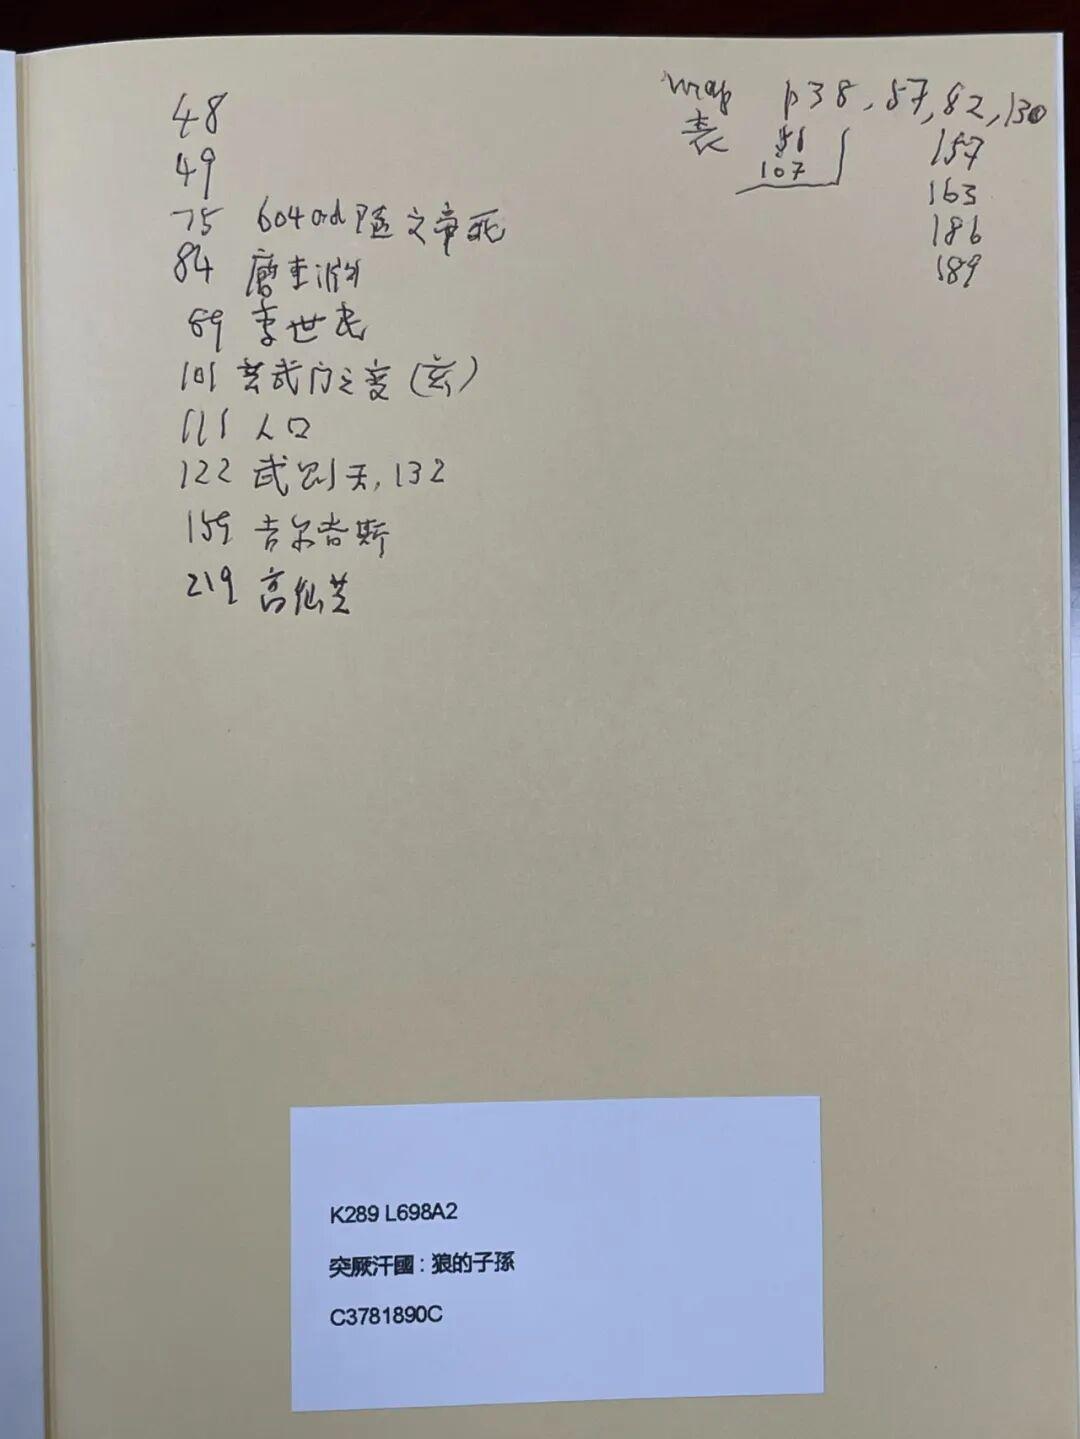 48
49
75 604ad 隨文帝死
84 唐李渊
89 李世民
101 玄武门之变 (玄)
111 人口
122 武则天, 132
159 吉尔吉斯
219 高仙芝
map p38, 57, 82, 130
表
107
157
163
186
189
K289 L698A2
突厥汗國 : 狼的子孫
C3781890C